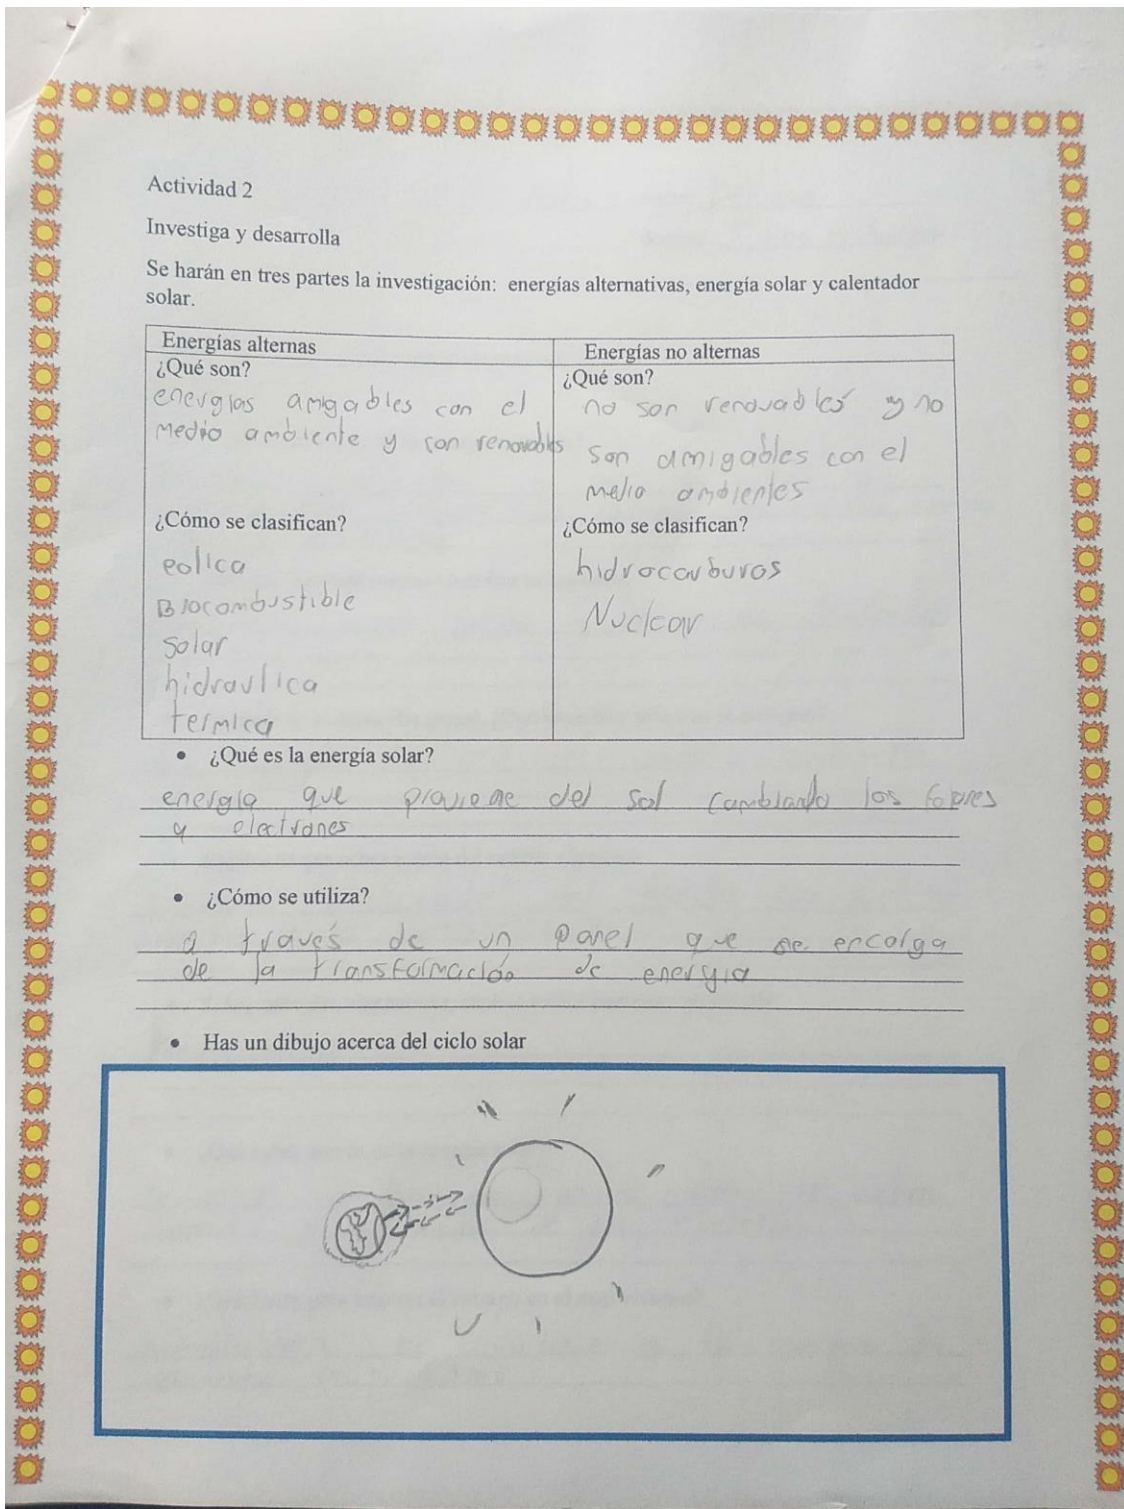 Actividad 2
Investiga y desarrolla
Se harán en tres partes la investigación: energías alternativas, energía solar y calentador
solar.
Energías alternas
¿Qué son?
energías amigables con el
Medio ambiente y son renovables
¿Cómo se clasifican?
eolica
Biocombustible
Solar
hidraulica
termica
Energías no alternas
¿Qué son?
no son renovables y no
son amigables con el
medio ambientes
¿Cómo se clasifican?
hidrocarburos
Nuclear
• ¿Qué es la energía solar?
energía que proviene del sol cambiando los
a electrones
• ¿Cómo se utiliza?
a través de un panel que se encarga
de la transformación de energia
• Has un dibujo acerca del ciclo solar